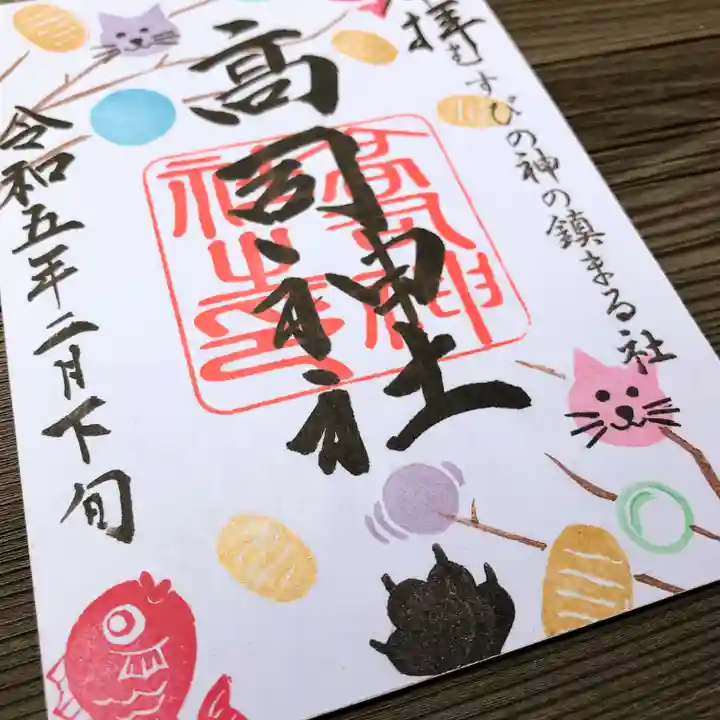 拝むすびの神の鎮まる社
高司神社
令和五年二月下旬